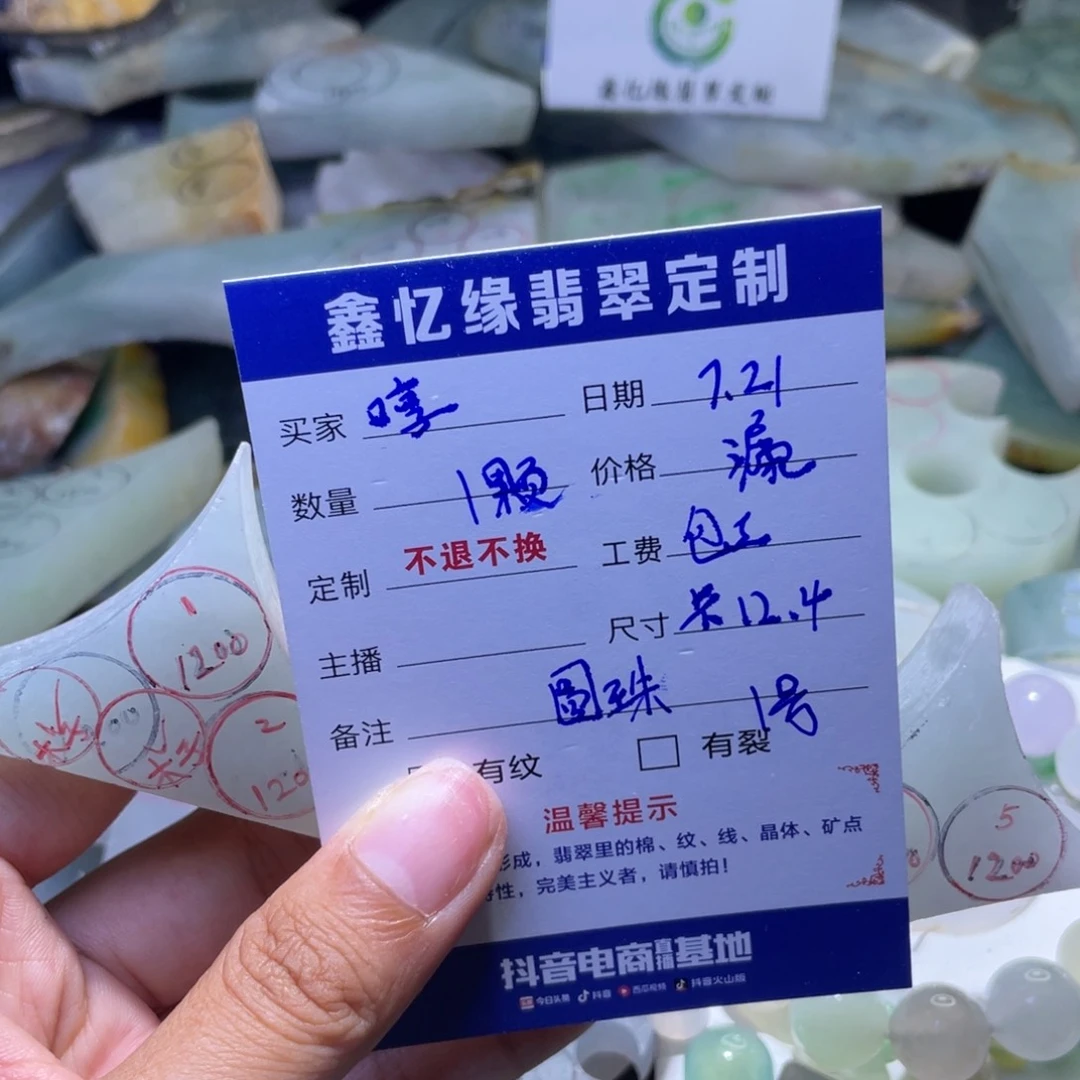 鑫忆缘翡翠定制
买家 嘻 日期 7.21
数量 1颗 价格 漏
定制 不退不换 工费 包工
主播 尺寸 卡12.4
备注 圆珠 1号
有纹 有裂
温馨提示
形成，翡翠里的棉、纹、线、晶体、矿点
性，完美主义者，请慎拍！
抖音电商直播基地
今日头条 抖音 西瓜视频 抖音火山版
1
1200
2
120
5
1200